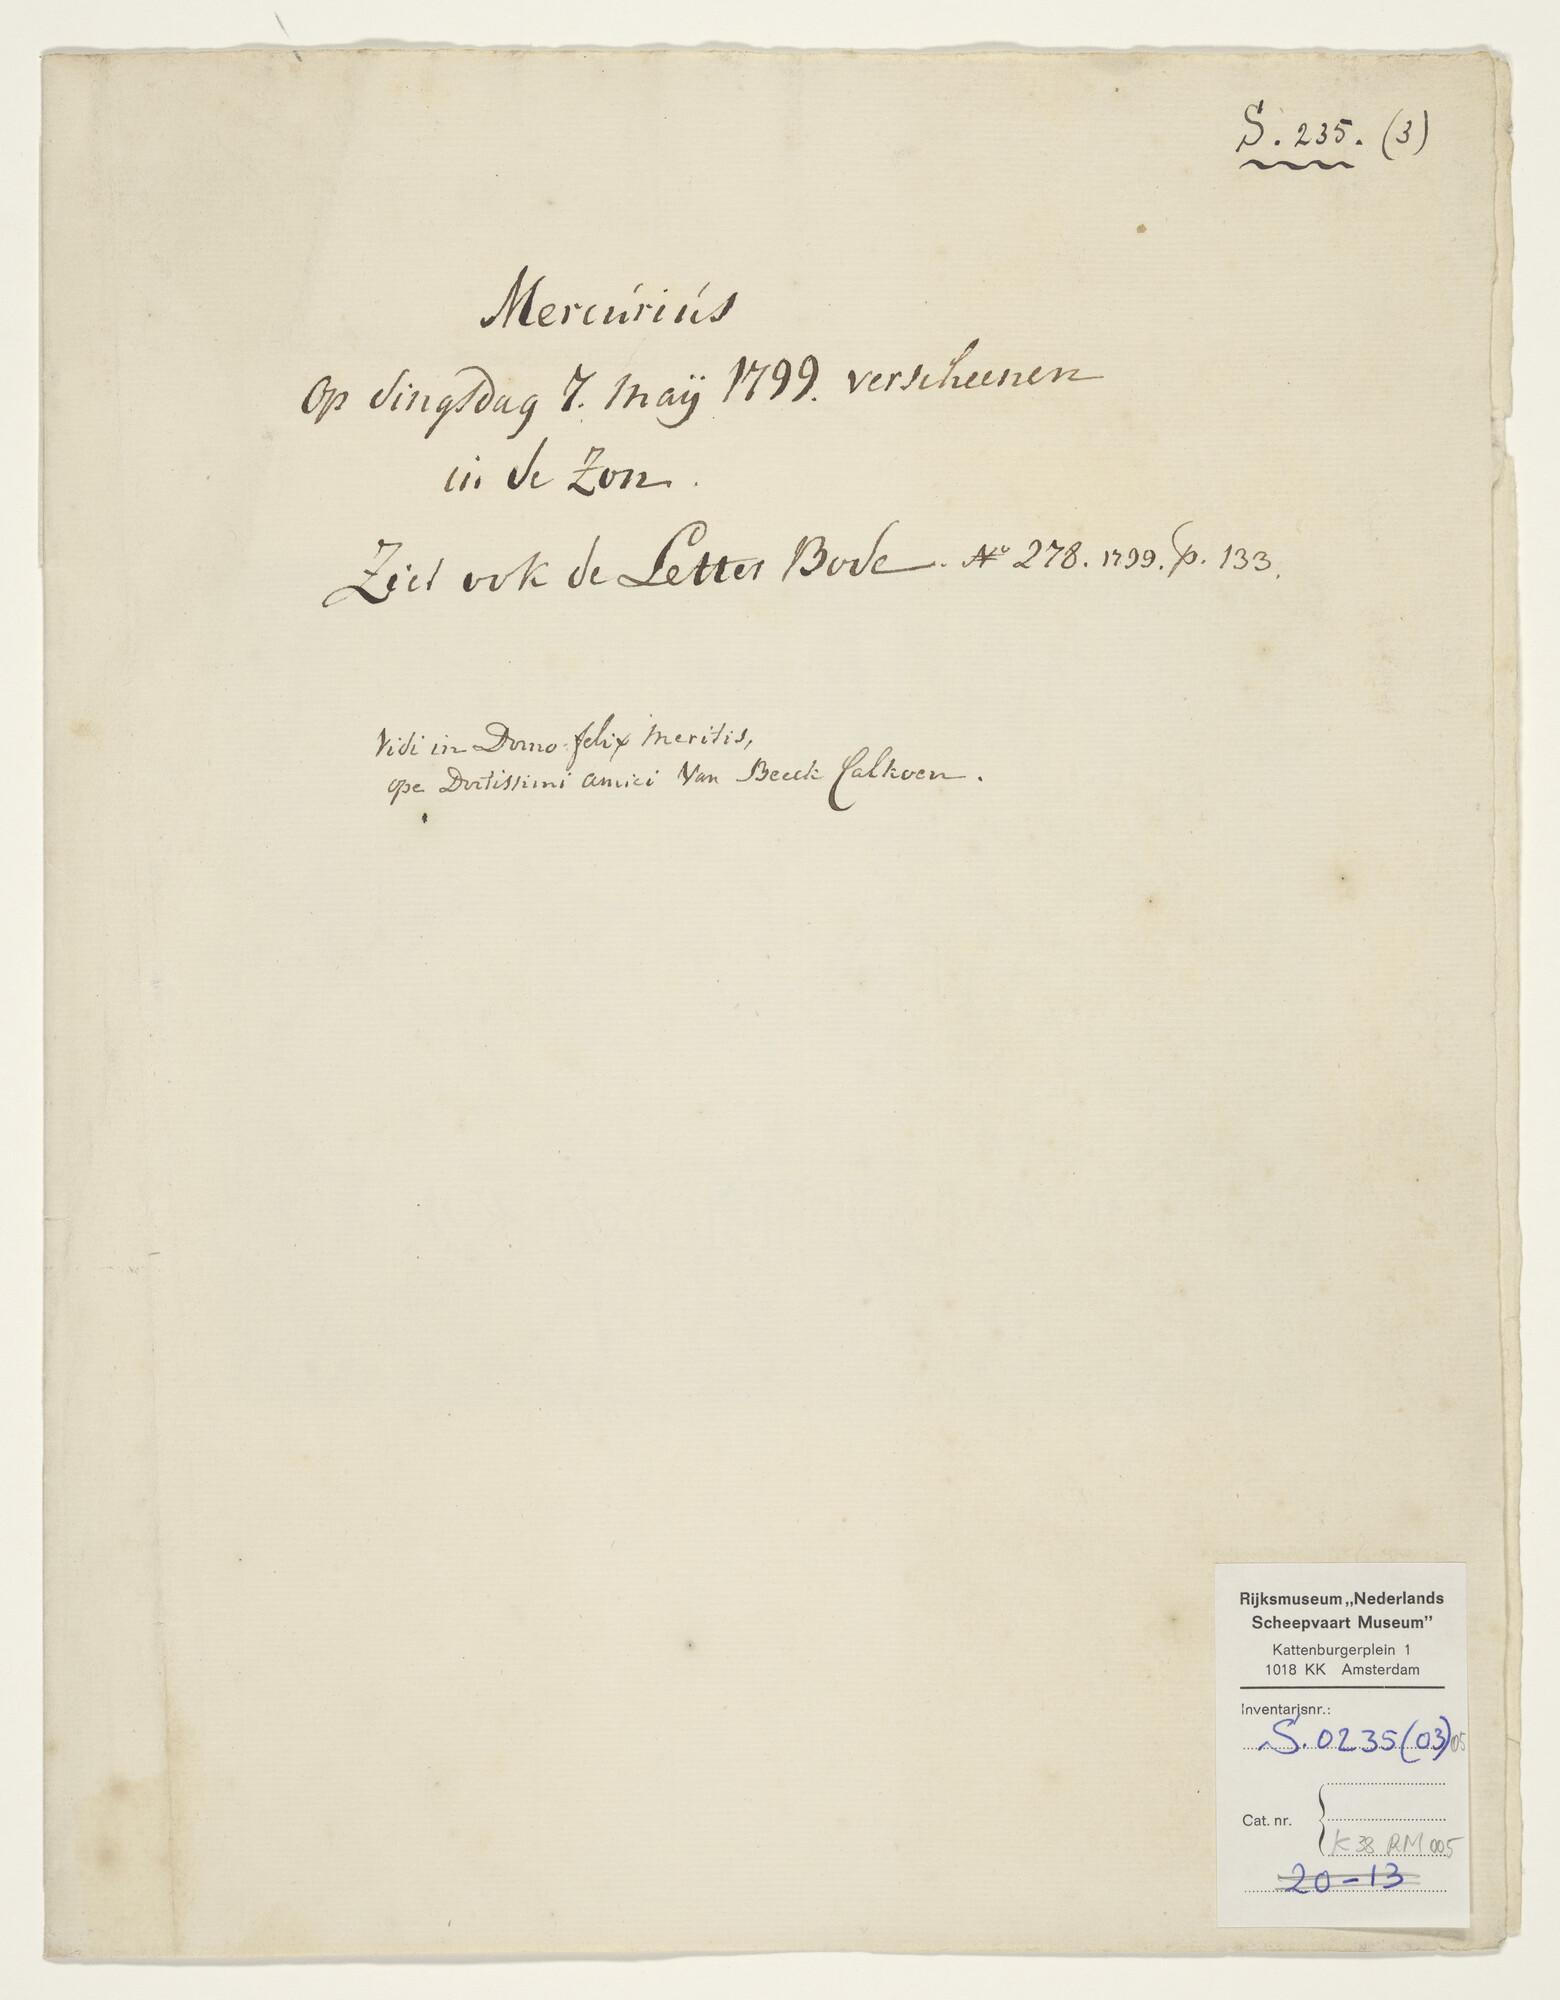 S. 235. (3)
Mercúriús
Op dingsdag 7. Maÿ 1799. verscheenen
in de Zon.
Ziet ook de Letter Bode. No 278. 1799. p. 133.
Vidi in Domo felix meritis,
ope Doctissimi amici Van Beeck Calkoen.
Rijksmuseum „Nederlands
Scheepvaart Museum”
Kattenburgerplein 1
1018 KK Amsterdam
Inventarisnr.:
S. 0235(03)05
Cat. nr.
K 38 RM 005
20-13